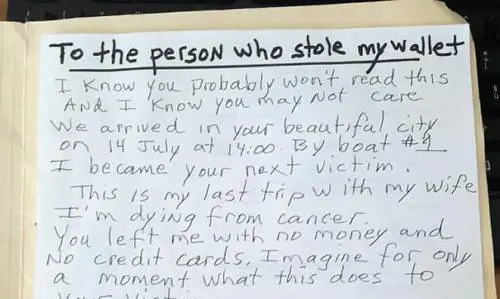 To the person who stole my wallet
I know you probably won't read this
And I know you may not care
We arrived in your beautiful city
on 14 July at 14:00. By boat #9
I became your next victim.
This is my last trip with my wife
I'm dying from cancer.
You left me with no money and
No credit cards. Imagine for only
a moment what this does to